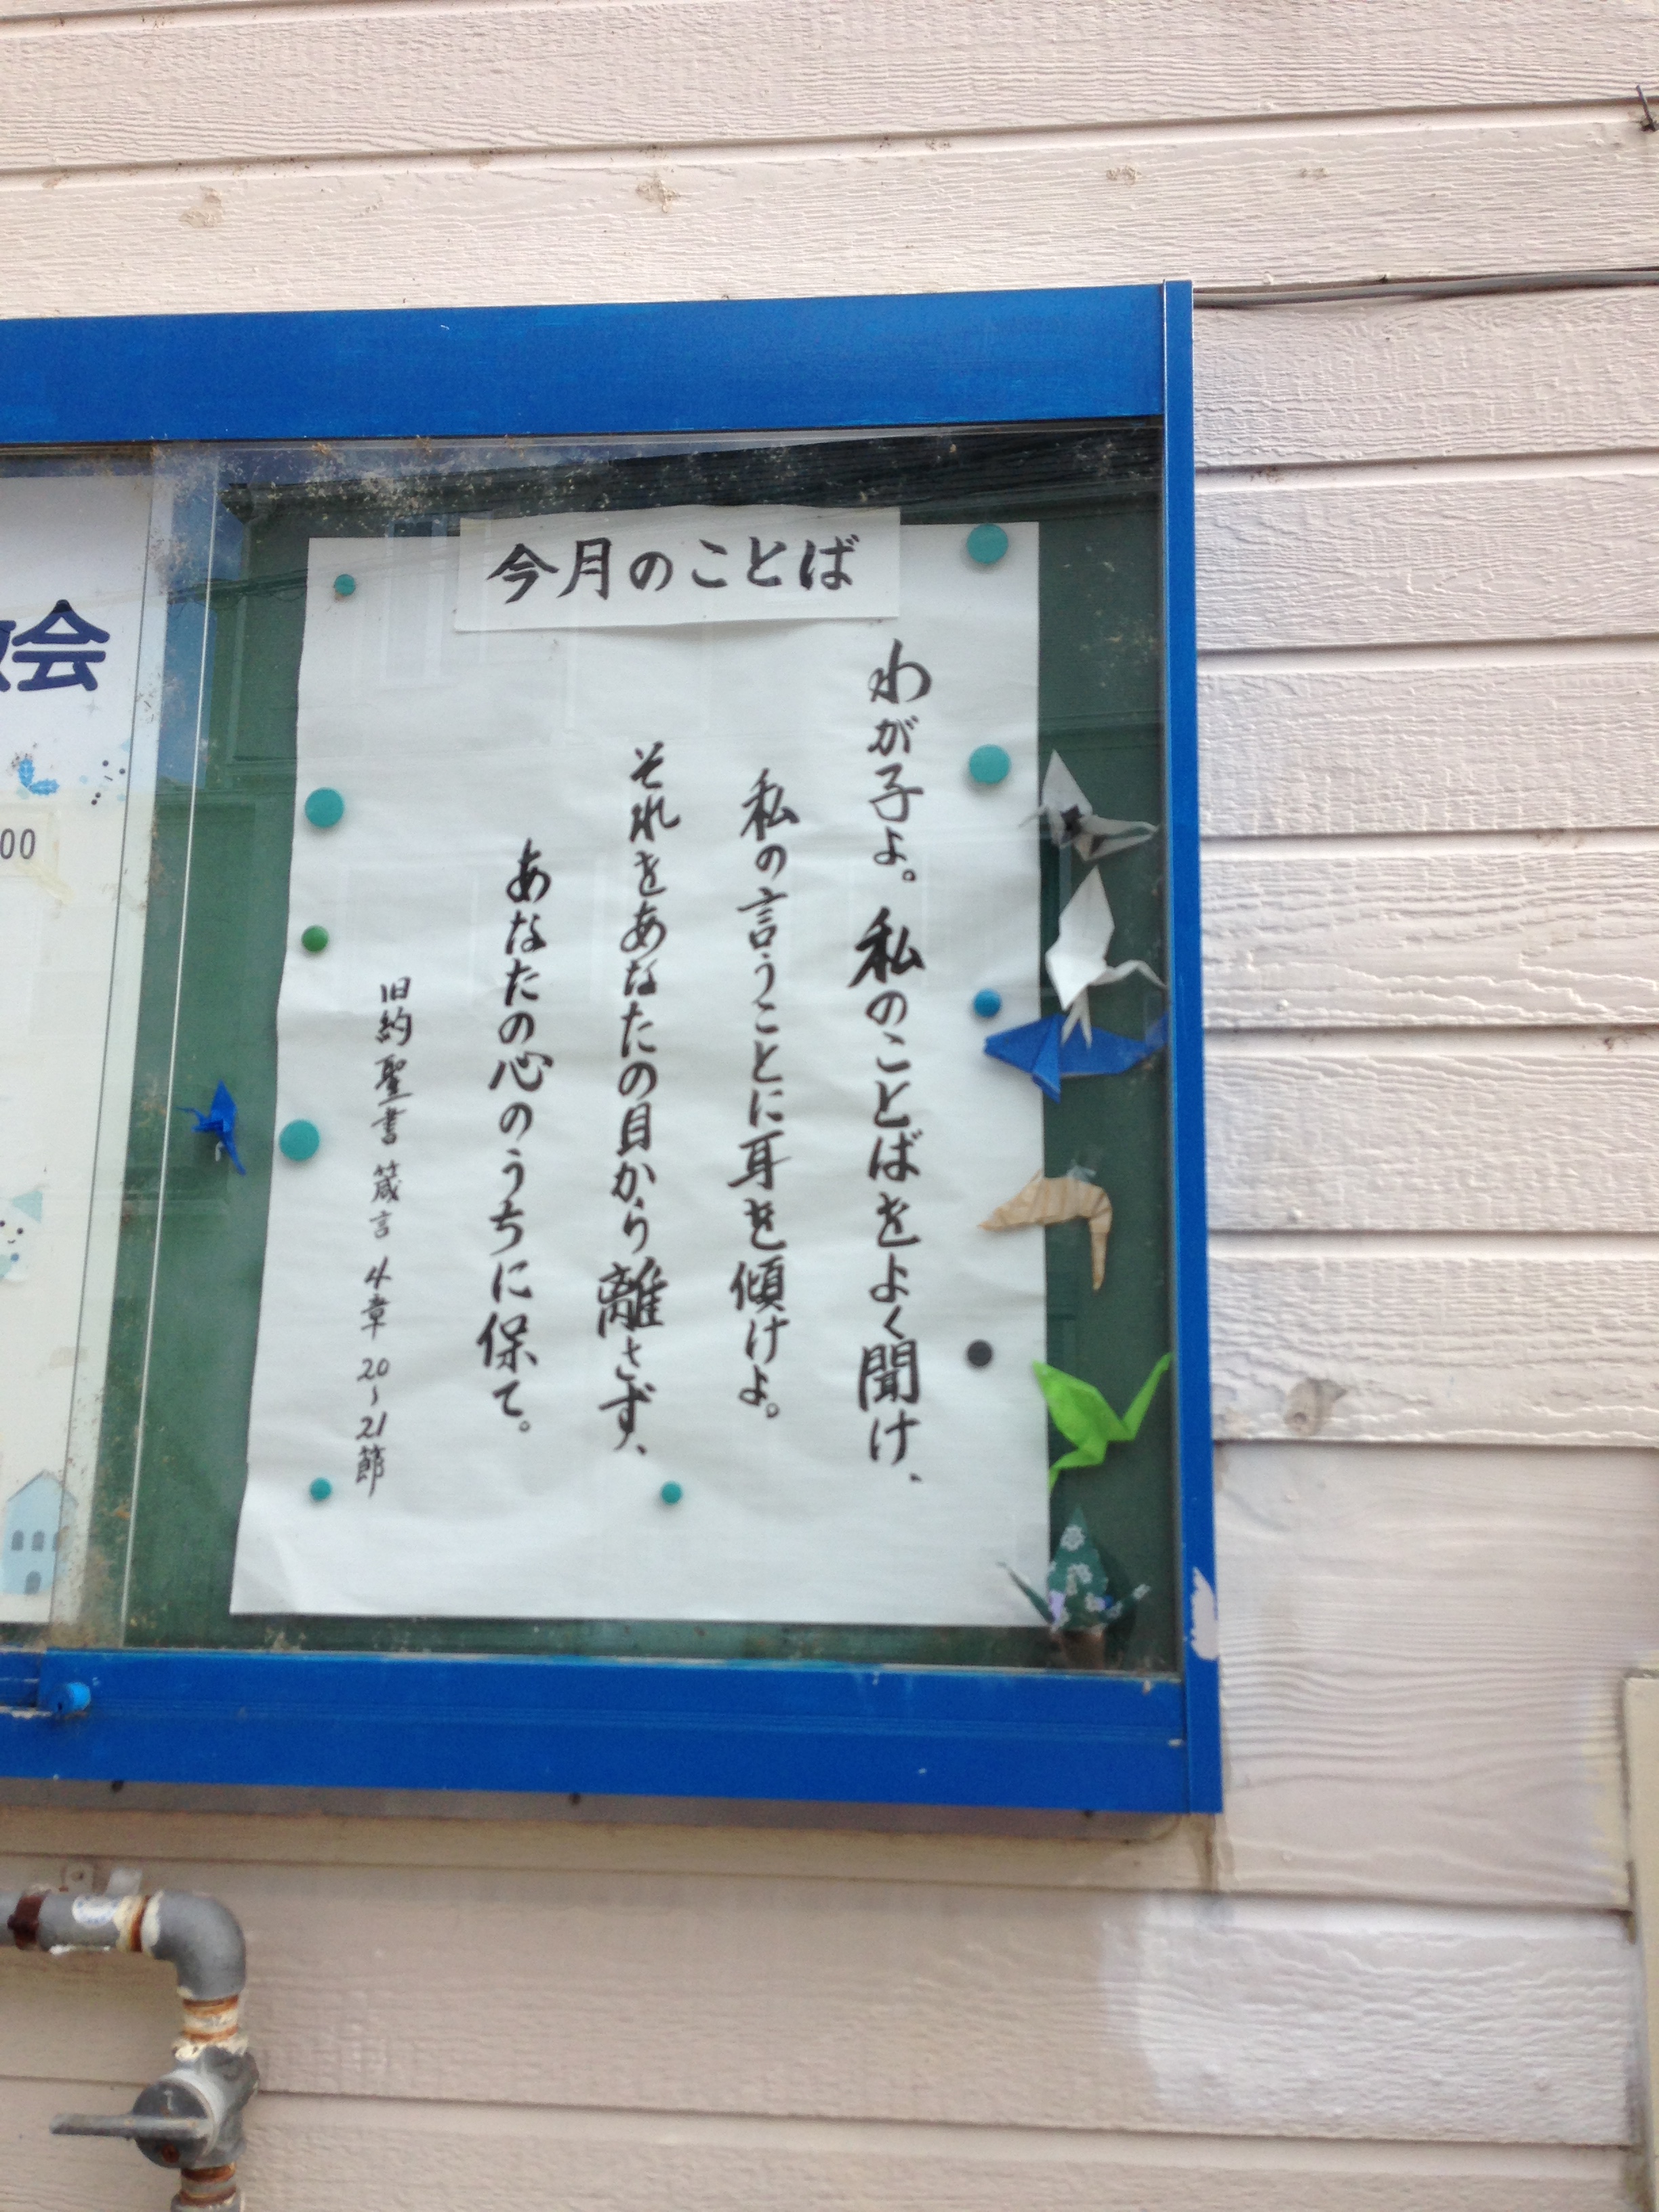 今月のことば
わが子よ。私のことばをよく聞け、
私の言うことに耳を傾けよ。
それをあなたの目から離さず、
あなたの心のうちに保て。
旧約聖書 箴言 4章 20~21節
会
00